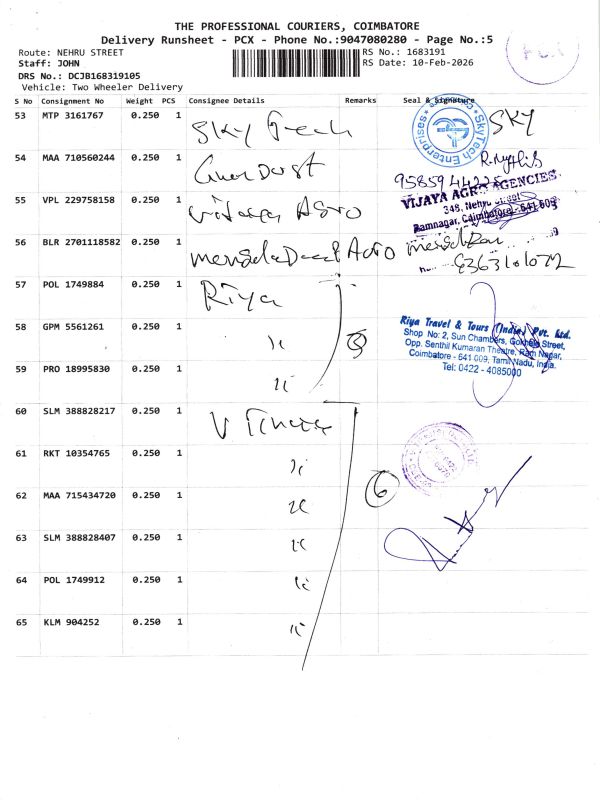 THE PROFESSIONAL COURIERS, COIMBATORE
Delivery Runsheet - PCX - Phone No.:9047080280 - Page No.:5
Route: NEHRU STREET
RS No.: 1683191
Staff: JOHN
RS Date: 10-Feb-2026
DRS No.: DCJB168319105
Vehicle: Two Wheeler Delivery
S No Consignment No Weight PCS Consignee Details Remarks Seal & Signature
53 MTP 3161767 0.250 1 Sky Tech SKY
SkyTech Enterprises
54 MAA 710560244 0.250 1
9585944225
55 VPL 229758158 0.250 1 Vijaya Agro
VIJAYA AGRO AGENCIES
348, Nehru Street
Ramnagar, Coimbatore - 641 009
56 BLR 2701118582 0.250 1 Agro
57 POL 1749884 0.250 1 Riya
58 GPM 5561261 0.250 1 ıı 3
Riya Travel & Tours (India) Pvt. Ltd.
Shop No: 2, Sun Chambers, Gokhale Street,
Opp. Senthil Kumaran Theatre, Ram Nagar,
Coimbatore - 641 009, Tamil Nadu, India.
Tel: 0422 - 4085000
59 PRO 18995830 0.250 1 ıı
60 SLM 388828217 0.250 1 V
61 RKT 10354765 0.250 1 ıı
62 MAA 715434720 0.250 1 ıı 6
63 SLM 388828407 0.250 1 ıı
64 POL 1749912 0.250 1 ıı
65 KLM 904252 0.250 1 ıı